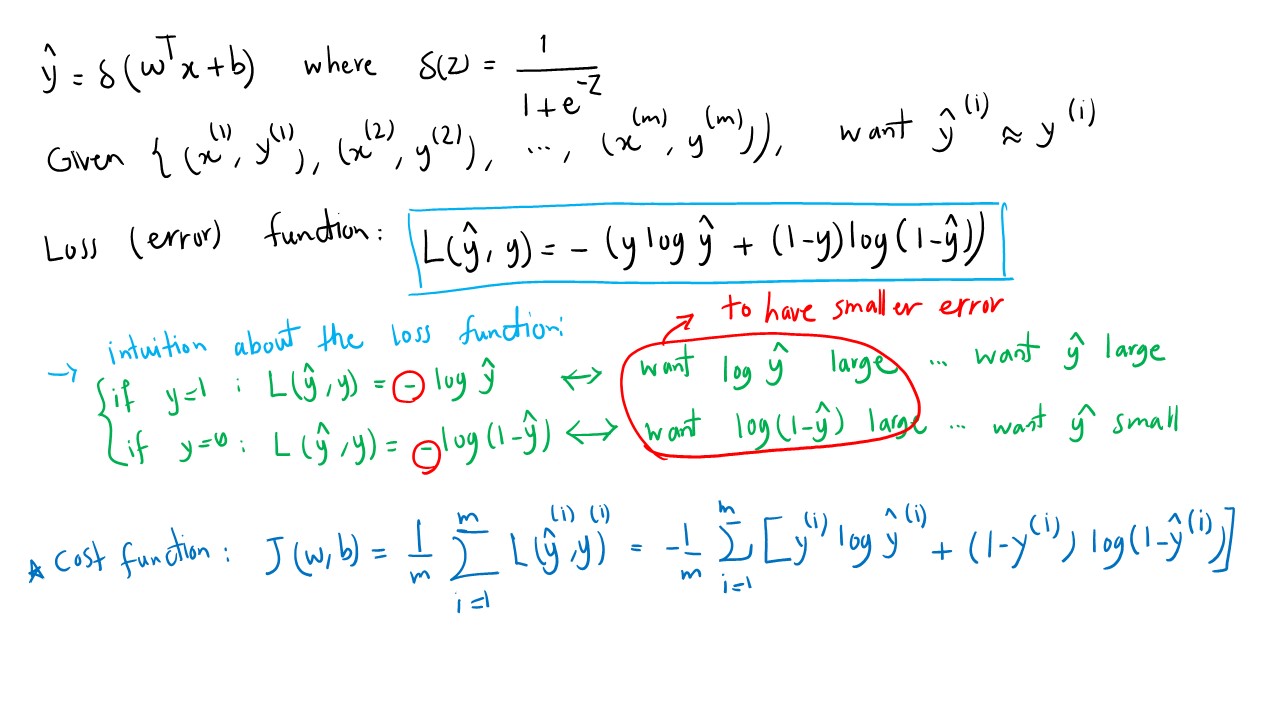 ŷ = δ(wᵀx + b) where δ(z) = 1 / (1 + e^-z)
Given {(x^(1), y^(1)), (x^(2), y^(2)), ..., (x^(m), y^(m))}, want ŷ^(i) ≈ y^(i)
Loss (error) function: L(ŷ, y) = - (y log ŷ + (1-y) log(1-ŷ))
to have smaller error
→ intuition about the loss function:
{ if y=1 : L(ŷ, y) = - log ŷ ↔ want log ŷ large ... want ŷ large
if y=0 : L(ŷ, y) = - log(1-ŷ) ↔ want log(1-ŷ) large ... want ŷ small
★ Cost function: J(w, b) = 1/m ∑_{i=1}^{m} L(ŷ^(i), y^(i)) = -1/m ∑_{i=1}^{m} [y^(i) log ŷ^(i) + (1-y^(i)) log(1-ŷ^(i))]